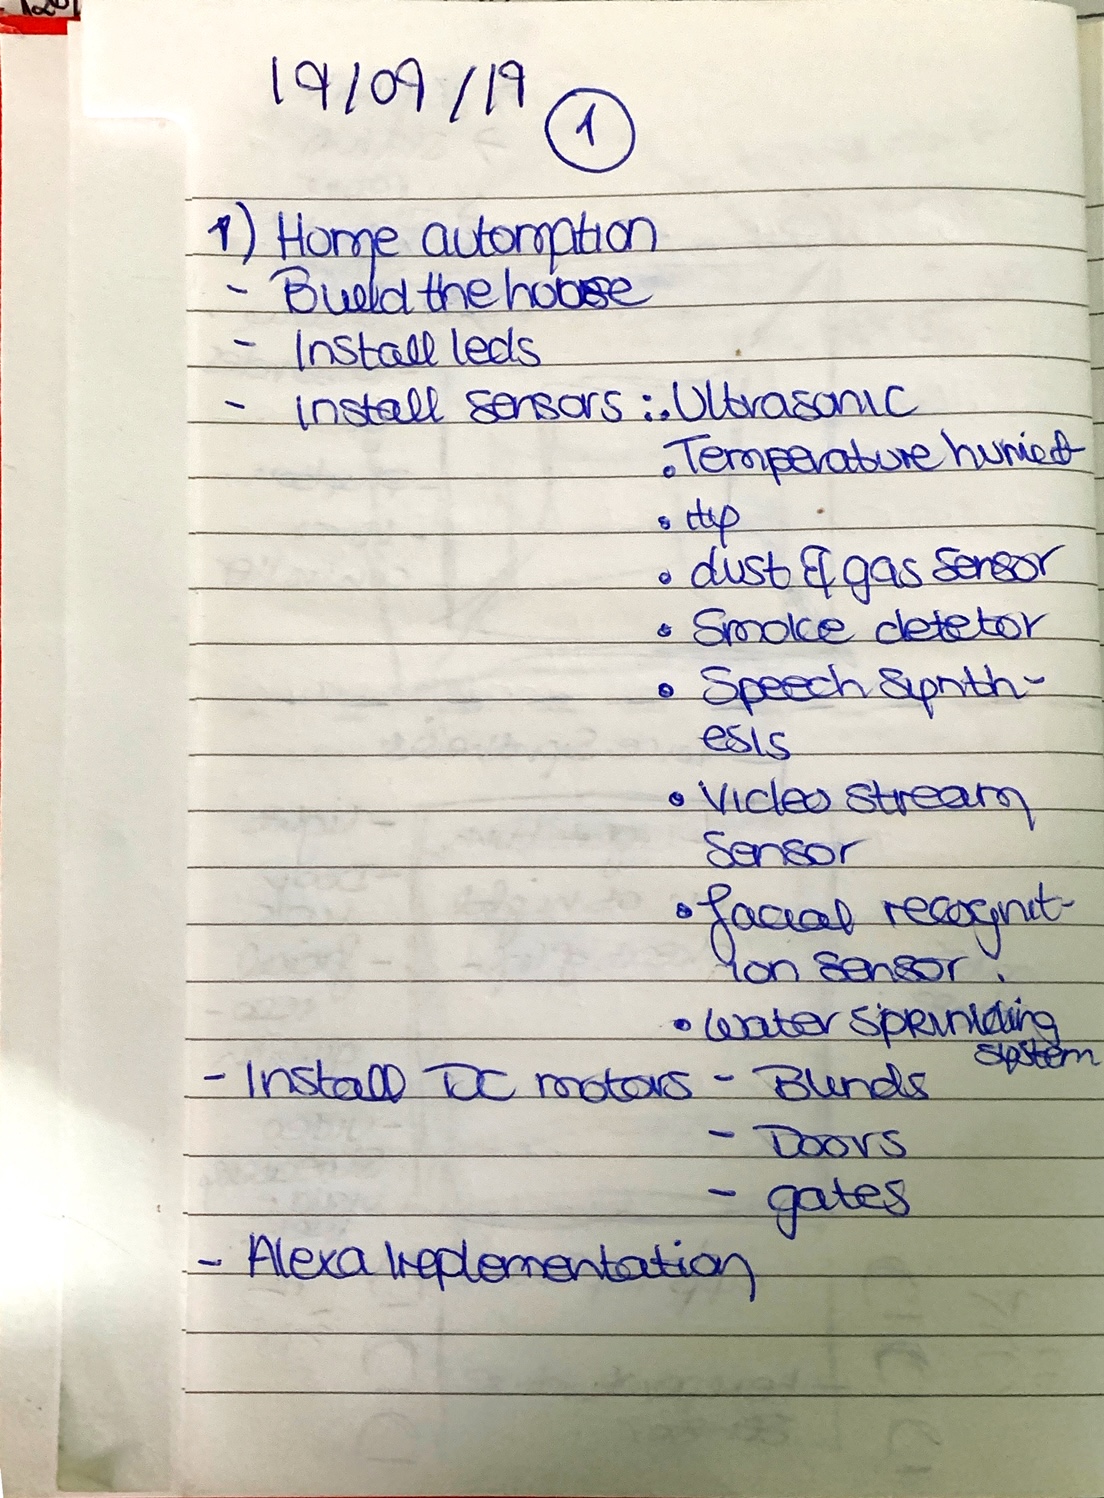 19/09/19
1
1) Home automation
- Build the house
- Install leds
- install sensors : . Ultrasonic
. Temperature humied
• dust & gas sensor
• Smoke detetor
• Speech Synth-
esis
• Video stream
Sensor
• facial recognit-
ion sensor.
• Water sprinkling
system
- Install DC motors - Blinds
- Doors
- gates
- Alexa Implementation